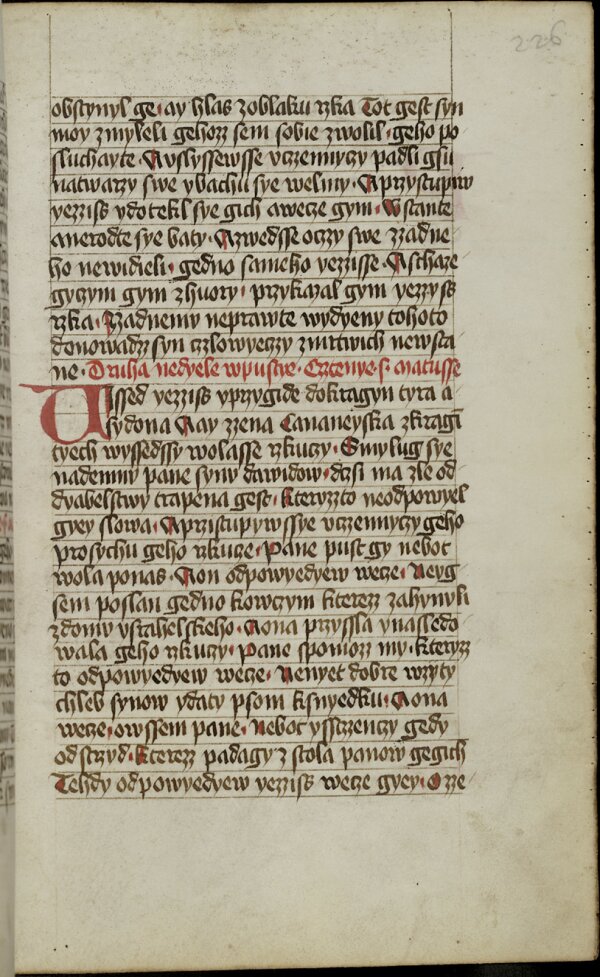 226
obstynyl ge · ay hlas zoblaku rzka Tot gest syn
moy zmyleli gehozz sem sobie zwolil · geho po
sluchayte · A vslyssewsse vczennyczy padli gsu
natwarzy swe ybachu sye welmy · A przystupiw
yezziss ydotekl sye gich awecze gym · Wstante
anerodte sye baty · A zwedsse oczy swe zzadne
ho newidieli · gedno sameho yezzisse · A schaze
gyczym gym zhuory · przykazal gym yezzyss
rzka · Zzadnemu neprawte wydyeny tohoto
donowadz syn czlowyeczy zmrtwich newsta
ne · Druha nedyele wpustye · Cztenye · s · Matusse
Vssed yezziss yprzygide dokragyn tyra a
sydona A ay zzena Cananeyska zkragi
tyech wyssedssy wolasse rzkuczy · Smylug sye
nademnu pane synu dawidow · dczi ma zle od
dyabelstwy trapena gest · kteryzzto neodpowyel
gyey slowa · A przistupywssye vczennyczy geho
prosychu geho rzkucze · Pane pust gy nebot
wola ponas · A on odpowyedyew wecze · Neyg
sem poslan gedno kowczym kterezz zahynuli
zdomu ysrahelskeho · A ona przyssla ynassledo
wala geho rzkuczy · Pane spomozz my · kteryzz
to odpowyedyew wecze · Nenyet dobre wzyty
chleb synow ydaty psom ksnyedku · A ona
wecze · owssem pane · Nebot ysstzenczy gedy
od strzyd · kterezz padagy z stola panow gegich
Tehdy odpowyedyew yezziss wecze gyey · O zze